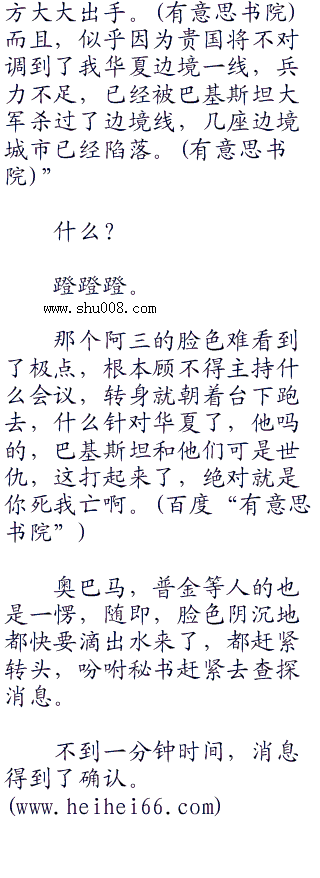 方大大出手。(有意思书院)
而且，似乎因为贵国将不对
调到了我华夏边境一线，兵
力不足，已经被巴基斯坦大
军杀过了边境线，几座边境
城市已经陷落。(有意思书
院)”
什么？
蹬蹬蹬。
www.shu008.com
那个阿三的脸色难看到
了极点，根本顾不得主持什
么会议，转身就朝着台下跑
去，什么针对华夏了，他吗
的，巴基斯坦和他们可是世
仇，这打起来了，绝对就是
你死我亡啊。(百度“有意思
书院”)
奥巴马，普金等人的也
是一愣，随即，脸色阴沉地
都快要滴出水来了，都赶紧
转头，吩咐秘书赶紧去查探
消息。
不到一分钟时间，消息
得到了确认。
(www.heihei66.com)